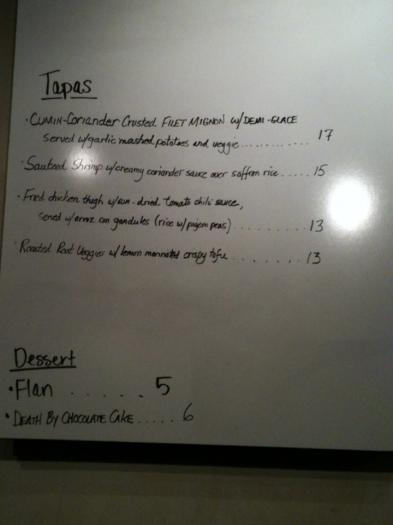 Tapas
· CUMIN-Coriander Crusted FILET MIGNON w/ DEMI-GLACE
Served w/garlic mashed potatoes and veggie.............. 17
· Sauteed Shrimp w/creamy coriander sauce over saffron rice..... 15
· Fried chicken thigh w/sun-dried tomato chili sauce,
served w/arroz con gandules (rice w/pigeon peas)....... 13
· Roasted Root Veggies w/ lemon marinated crispy tofu........ 13
Dessert
· Flan...... 5
· DEATH BY CHOCOLATE CAKE..... 6